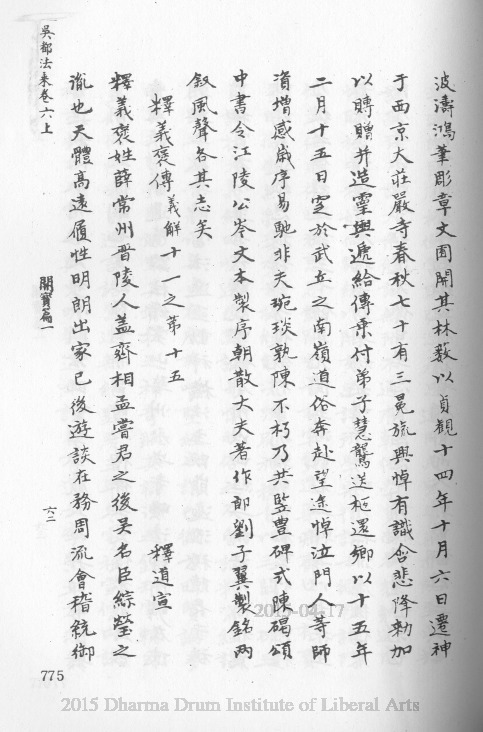 波濤鴻筆彫章文囿開其林藪以貞觀十四年十月六日遷神
于西京大莊嚴寺春秋七十有三冕旒興悼有識含悲降勑加
以賻贈并造靈輿遞給傳乘付弟子慧鸑送柩還鄉以十五年
二月十五日窆於武丘之南嶺道俗奔赴望途悼泣門人等師
資增感歲序易馳非夫琬琰孰陳不朽乃共竪豊碑式陳碣頌
中書令江陵公岑文本製序朝散大夫著作郎劉子翼製銘兩
叙風聲各其志矣
釋義褒傳 義解十一之第十五 釋道宣
釋義褒姓薛常州晋陵人蓋齊相孟嘗君之後吳名臣綜瑩之
胤也天體高遠履性明朗出家已後遊談在務周流會稽統御
吳都法乘卷六上 開寶篇一 六二
775
2015-04-17
2015 Dharma Drum Institute of Liberal Arts